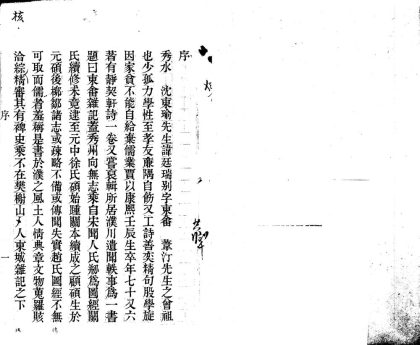 序
秀水　沈東瑜先生諱廷瑞别字東畬　葦汀先生之曾祖
也少孤力學性至孝友廉隅自飭又工詩善奕精句股學旋
因家貧不能自給棄儒業賈以康熙壬辰生卒年七十又六
著有靜契軒詩一卷又嘗裒輯所居濮川遺聞軼事爲一書
題曰東畬雜記蓋秀州向無志乘自宋聞人氏剏爲圖經關
氏續修未竟逮至元中徐氏碩始踵關本續成之顧碩生於
元碩後柳鄒諸志或疎略不備或傳聞失實趙氏圖經不無
可取而儒者羞稱是書於濮之風土人情典章文物蒐羅賅
洽綜精審其有裨史乘不在樊榭山人東城雜記之下
序
一
核